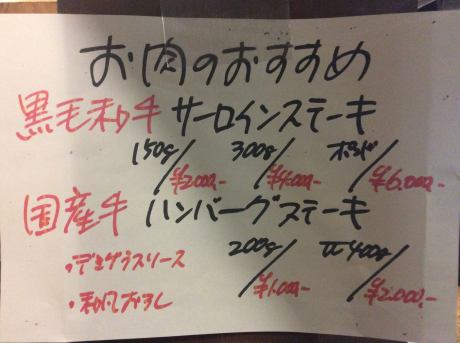 お肉のおすすめ
黒毛和牛 サーロインステーキ
150g/¥2000- 300g/¥4000- ポンド/¥6.000-
国産牛 ハンバーグステーキ
・デミグラスソース 200g/¥1.000- W400g/¥2.000-
・和風おろし